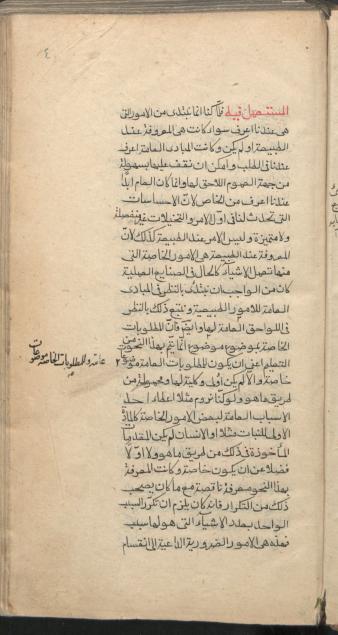 ٤
المستعمل فيه فلما كنا انما نبتدى من الامور التى
هى عندنا اعرف سواء كانت هى المعروفة عند
الطبيعة او لم يكن وكانت المبادى العامة اعرف
عندنا فى الطلب وامكن ان نقف عليها بسهولة
من جهة العموم اللاحق لها وانما كان العام ابدًا
عندنا اعرف من الخاص لان الاحساسات
التى تحدث لنا فى اول الامر والتخيلات غير منفصلة
ولا متميزة وليس الامر عند الطبيعة كذلك لان
المعروفة عند الطبيعة هى الامور الخاصة التى
منها تحصل الاشياء كالحال فى الصنايع العملية
كان من الواجب ان نبتدى بالنظر فى المبادى
العامة للامور الطبيعية ونتبع ذلك بالنظر
فى اللواحق العامة لها وايضا فان المطلوبات
الخاصة بموضوع موضوع انما يتم بهذا النحو من
التعليم اعنى ان يكون للمطلوبات العامة موضوع
خاصة والا لم يكن اول وكلية لها ومحمولة من
طريق ما هو ولو كنا نروم مثلا اعطاء احد
الاسباب العامة لبعض الامور الخاصة كالمادة
الاولى للنبات مثلا او الانسان لم يكن المقدمات
المأخوذة فى ذلك من طريق ما هو ولا اولا
فضلا عن ان يكون خاصة وكانت المعرفة
بهذا النحو معرفة ناقصة مع ما كان يصحب
ذلك من التكرار فانه كان يلزم ان تكرر السبب
الواحد بعدد الاشياء التى هو لها سبب
فهذه هى الامور الضرورية الداعية الى انقسام
عامة والمطلوبات الخاصة موضوعات